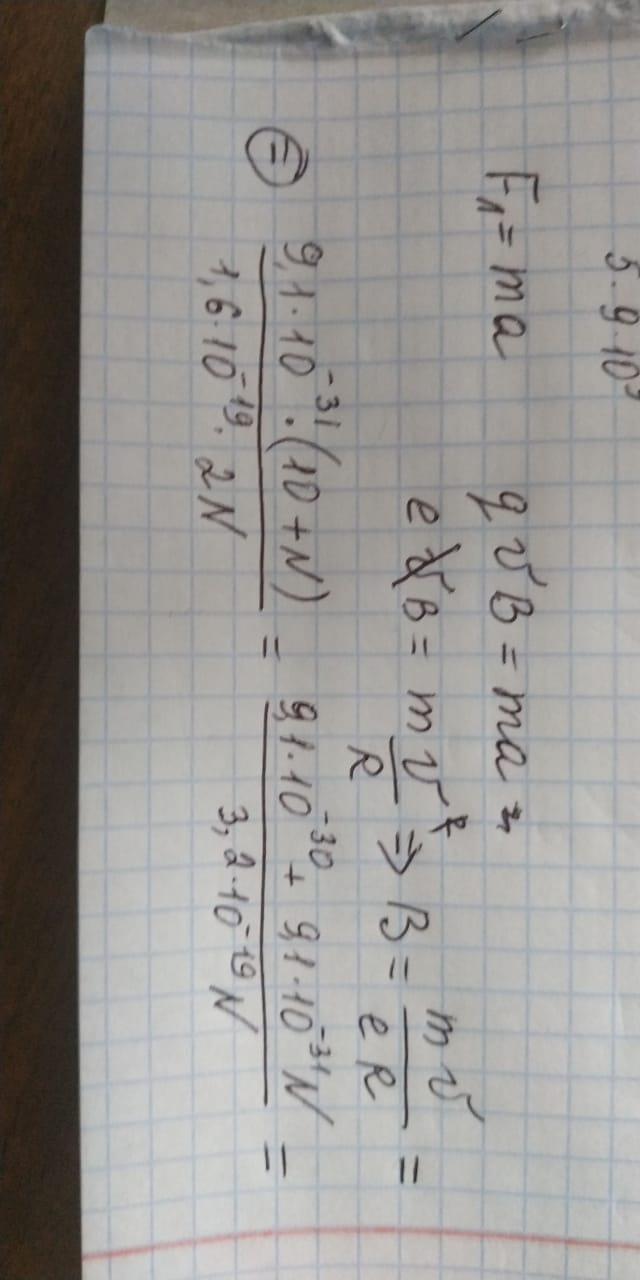 5·9·10⁹
Fл = ma   qvB = maн
evB = m v²/R ⇒ B = mv/eR =
⊜ 9,1·10⁻³¹·(10+N)/1,6·10⁻¹⁹·2N = 9,1·10⁻³⁰ + 9,1·10⁻³¹N/3,2·10⁻¹⁹N =